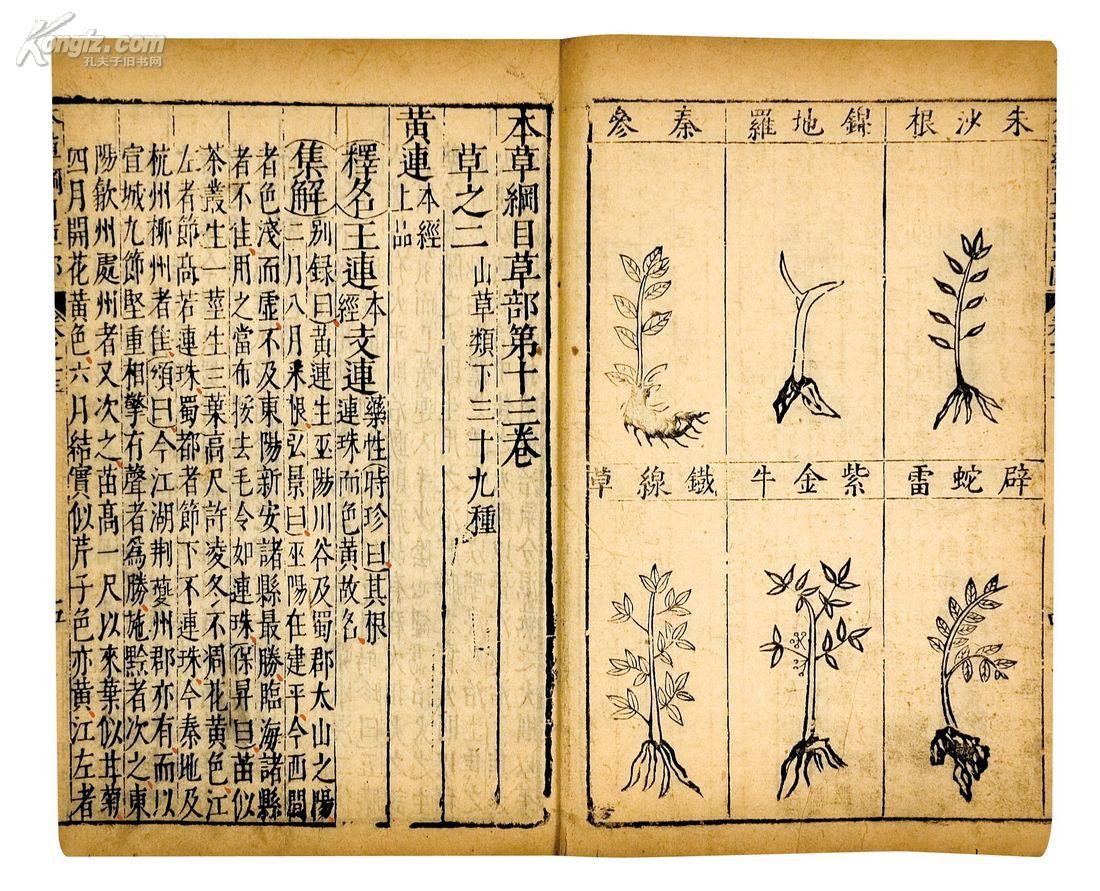 Kongfz.com
孔夫子旧书网
朱沙根
錦地羅
秦參
辟蛇雷
紫金牛
鐵線草
本草綱目草部第十三卷
草之二 山草類下三十九種
黃連 本經上品
釋名 王連 本經 支連 藥性 時珍曰其根連珠而色黃故名
集解 别録曰黃連生巫陽川谷及蜀郡太山之陽
二月八月采根弘景曰巫陽在建平今西間
者色淺而虛不及東陽新安諸縣最勝臨海諸縣
者不佳用之當布挼去毛令如連珠保昇曰苗似
茶叢生一莖生三葉高尺許凌冬不凋花黃色江
左者節高若連珠蜀都者節下不連珠今秦地及
杭州柳州者佳頌曰今江湖荆夔州郡亦有而以
宣城九節堅重相擊有聲者爲勝施黔者次之東
陽歙州處州者又次之苗高一尺以來葉似甘菊
四月開花黃色六月結實似芹子色亦黃江左者